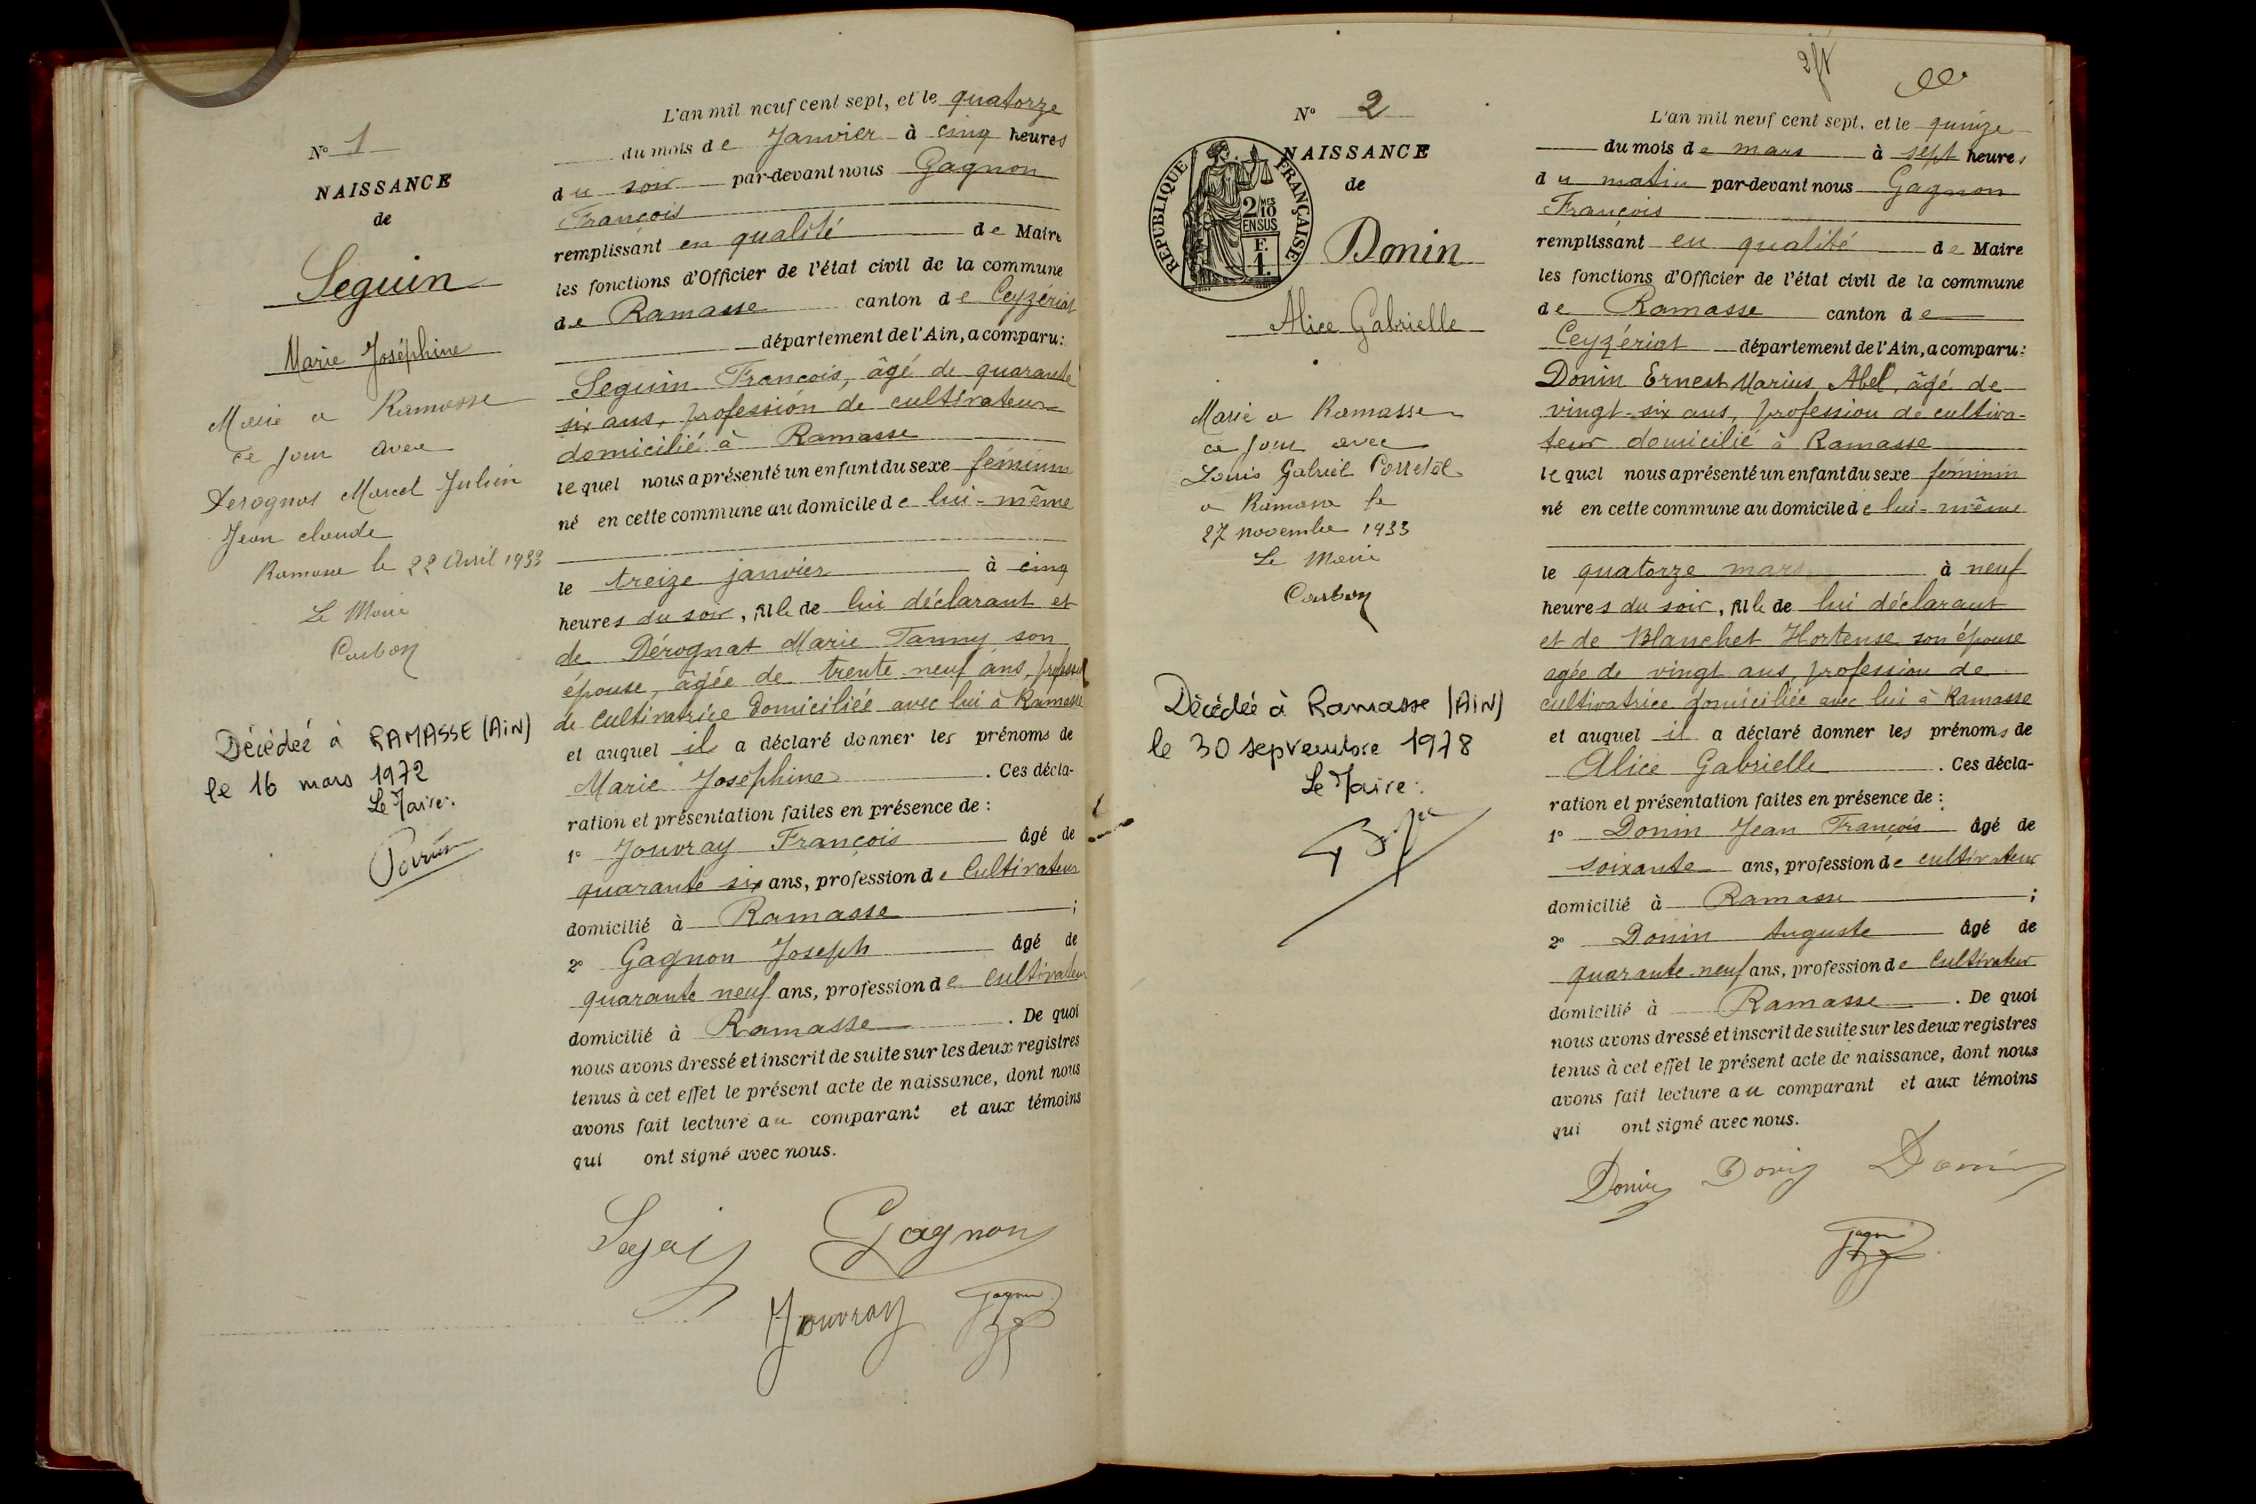 N° 1
NAISSANCE
de
Seguin
Marie Joséphine
Marié a Ramasse
ce jour avec
Derognat Marcel Julien
Jean claude
Ramasse le 22 Avril 1933
Le Maire
Carbon
Décédée à RAMASSE (AiN)
le 16 mars 1972
Le Maire:
L'an mil neuf cent sept, et le quatorze
du mois de Janvier à cinq heures
du soir par-devant nous Gagnon
François
remplissant en qualité de Maire
les fonctions d'Officier de l'état civil de la commune
de Ramasse canton de Ceyzériat
département de l'Ain, a comparu:
Seguin François, âgé de quarante
six ans, profession de cultivateur
domicilié à Ramasse
lequel nous a présenté un enfant du sexe féminin
né en cette commune au domicile de lui-même
le treize janvier à cinq
heures du soir, fille de lui déclarant et
de Dérognat Marie Fanny son
épouse, âgée de trente neuf ans, profession
de cultivatrice domiciliée avec lui à Ramasse
et auquel il a déclaré donner les prénoms de
Marie Joséphine . Ces décla-
ration et présentation faites en présence de :
1° Jouvray François âgé de
quarante six ans, profession de Cultivateur
domicilié à Ramasse ;
2° Gagnon Joseph âgé de
quarante neuf ans, profession de cultivateur
domicilié à Ramasse . De quoi
nous avons dressé et inscrit de suite sur les deux registres
tenus à cet effet le présent acte de naissance, dont nous
avons fait lecture au comparant et aux témoins
qui ont signé avec nous.
Gagnon
Jouvray Gagnon
N° 2
NAISSANCE
de
RÉPUBLIQUE FRANÇAISE
2 MES
10
EN SUS
F.
1.
Donin
Alice Gabrielle
Marié a Ramasse
ce jour avec
Louis Gabriel
a Ramasse le
27 novembre 1933
Le Maire
Carbon
Décédée à Ramasse (AiN)
le 30 septembre 1978
Le Maire:
L'an mil neuf cent sept, et le quinze
du mois de mars à sept heures
du matin par-devant nous Gagnon
François
remplissant en qualité de Maire
les fonctions d'Officier de l'état civil de la commune
de Ramasse canton de
Ceyzériat département de l'Ain, a comparu:
Donin Ernest Marius Abel, âgé de
vingt-six ans, profession de cultiva-
teur domicilié à Ramasse
lequel nous a présenté un enfant du sexe féminin
né en cette commune au domicile de lui-même
le quatorze mars à neuf
heures du soir, fille de lui déclarant
et de Blanchet Hortense son épouse
agée de vingt ans, profession de
cultivatrice domiciliée avec lui à Ramasse
et auquel il a déclaré donner les prénoms de
Alice Gabrielle . Ces décla-
ration et présentation faites en présence de :
1° Donin Jean François âgé de
soixante ans, profession de cultivateur
domicilié à Ramasse ;
2° Donin Auguste âgé de
quarante-neuf ans, profession de Cultivateur
domicilié à Ramasse . De quoi
nous avons dressé et inscrit de suite sur les deux registres
tenus à cet effet le présent acte de naissance, dont nous
avons fait lecture au comparant et aux témoins
qui ont signé avec nous.
Donin Donin Donin
Gagnon